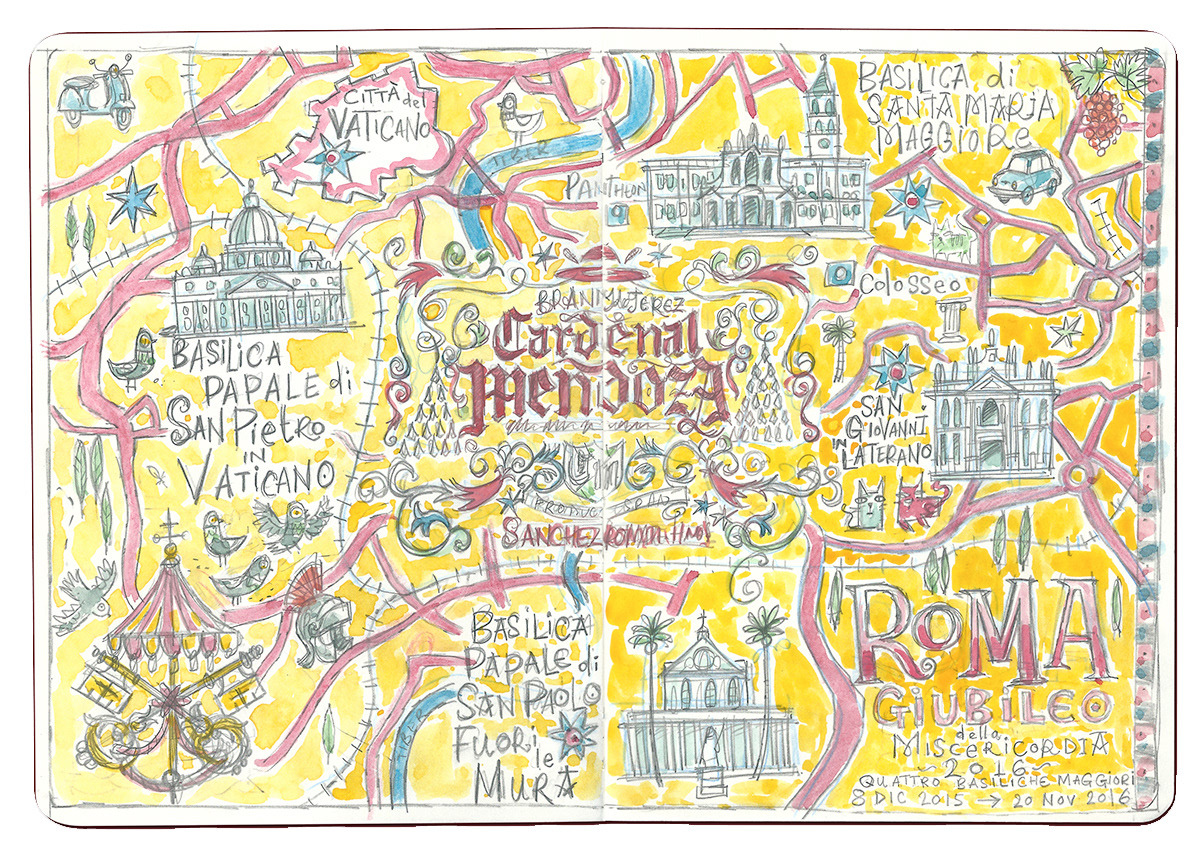 CITTÀ del
VATICANO
TIBER
PANTHEON
BASILICA di
SANTA MARIA
MAGGIORE
COLOSSEO
BASILICA
PAPALE di
SAN PIETRO
IN
VATICANO
BRANDY de JEREZ
Cardenal
Mendoza
SAN
GIOVANNI
IN
LATERANO
SANCHEZ ROMATE HNOS
BASILICA
PAPALE di
SAN PAOLO
FUORI
le
MURA
TIBER
ROMA
GIUBILEO
della
MISCERICORDIA
~ 2016 ~
QUATTRO BASILICHE MAGGIORI
8 DIC 2015 → 20 NOV 2016